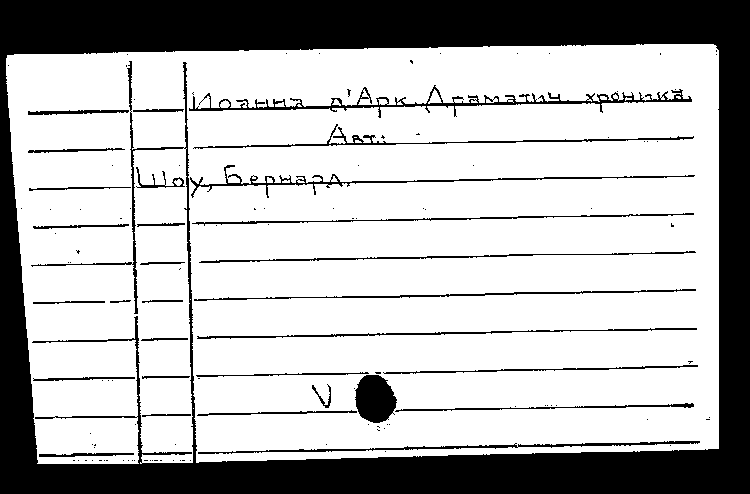 Иоанна д'Арк. Драматич. хроника.
Авт.:
Шоу, Бернард.
V